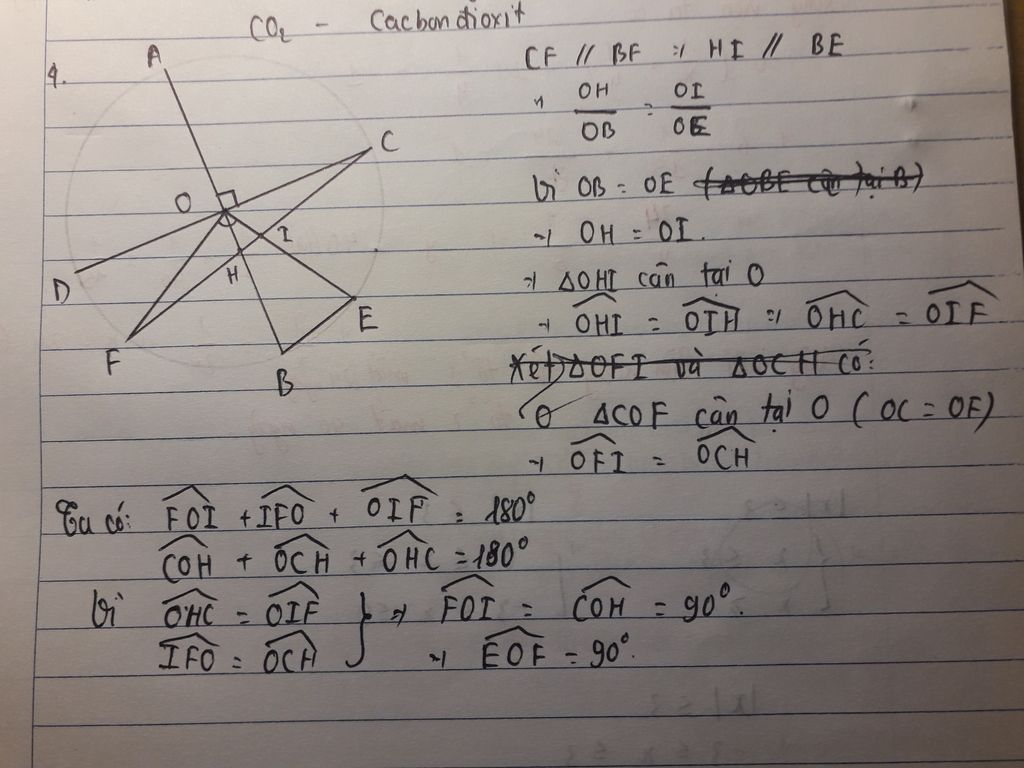 CO₂ - Cacbondioxit
4.
A
C
O
I
D
H
E
F
B
CF // BF ⇒ HI // BE
⇒ OH/OB = OI/OE
Vì OB = OE (ΔOBE cân tại B)
⇒ OH = OI.
⇒ ΔOHI cân tại O
⇒ \widehat{OHI} = \widehat{OIH} ⇒ \widehat{OHC} = \widehat{OIF}
Xét ΔOFI và ΔOCH có:
ΔCOF cân tại O (OC = OF)
⇒ \widehat{OFI} = \widehat{OCH}
Ta có: \widehat{FOI} + \widehat{IFO} + \widehat{OIF} = 180°
\widehat{COH} + \widehat{OCH} + \widehat{OHC} = 180°
Vì \widehat{OHC} = \widehat{OIF} } ⇒ \widehat{FOI} = \widehat{COH} = 90°.
\widehat{IFO} = \widehat{OCH} ⇒ \widehat{EOF} = 90°.